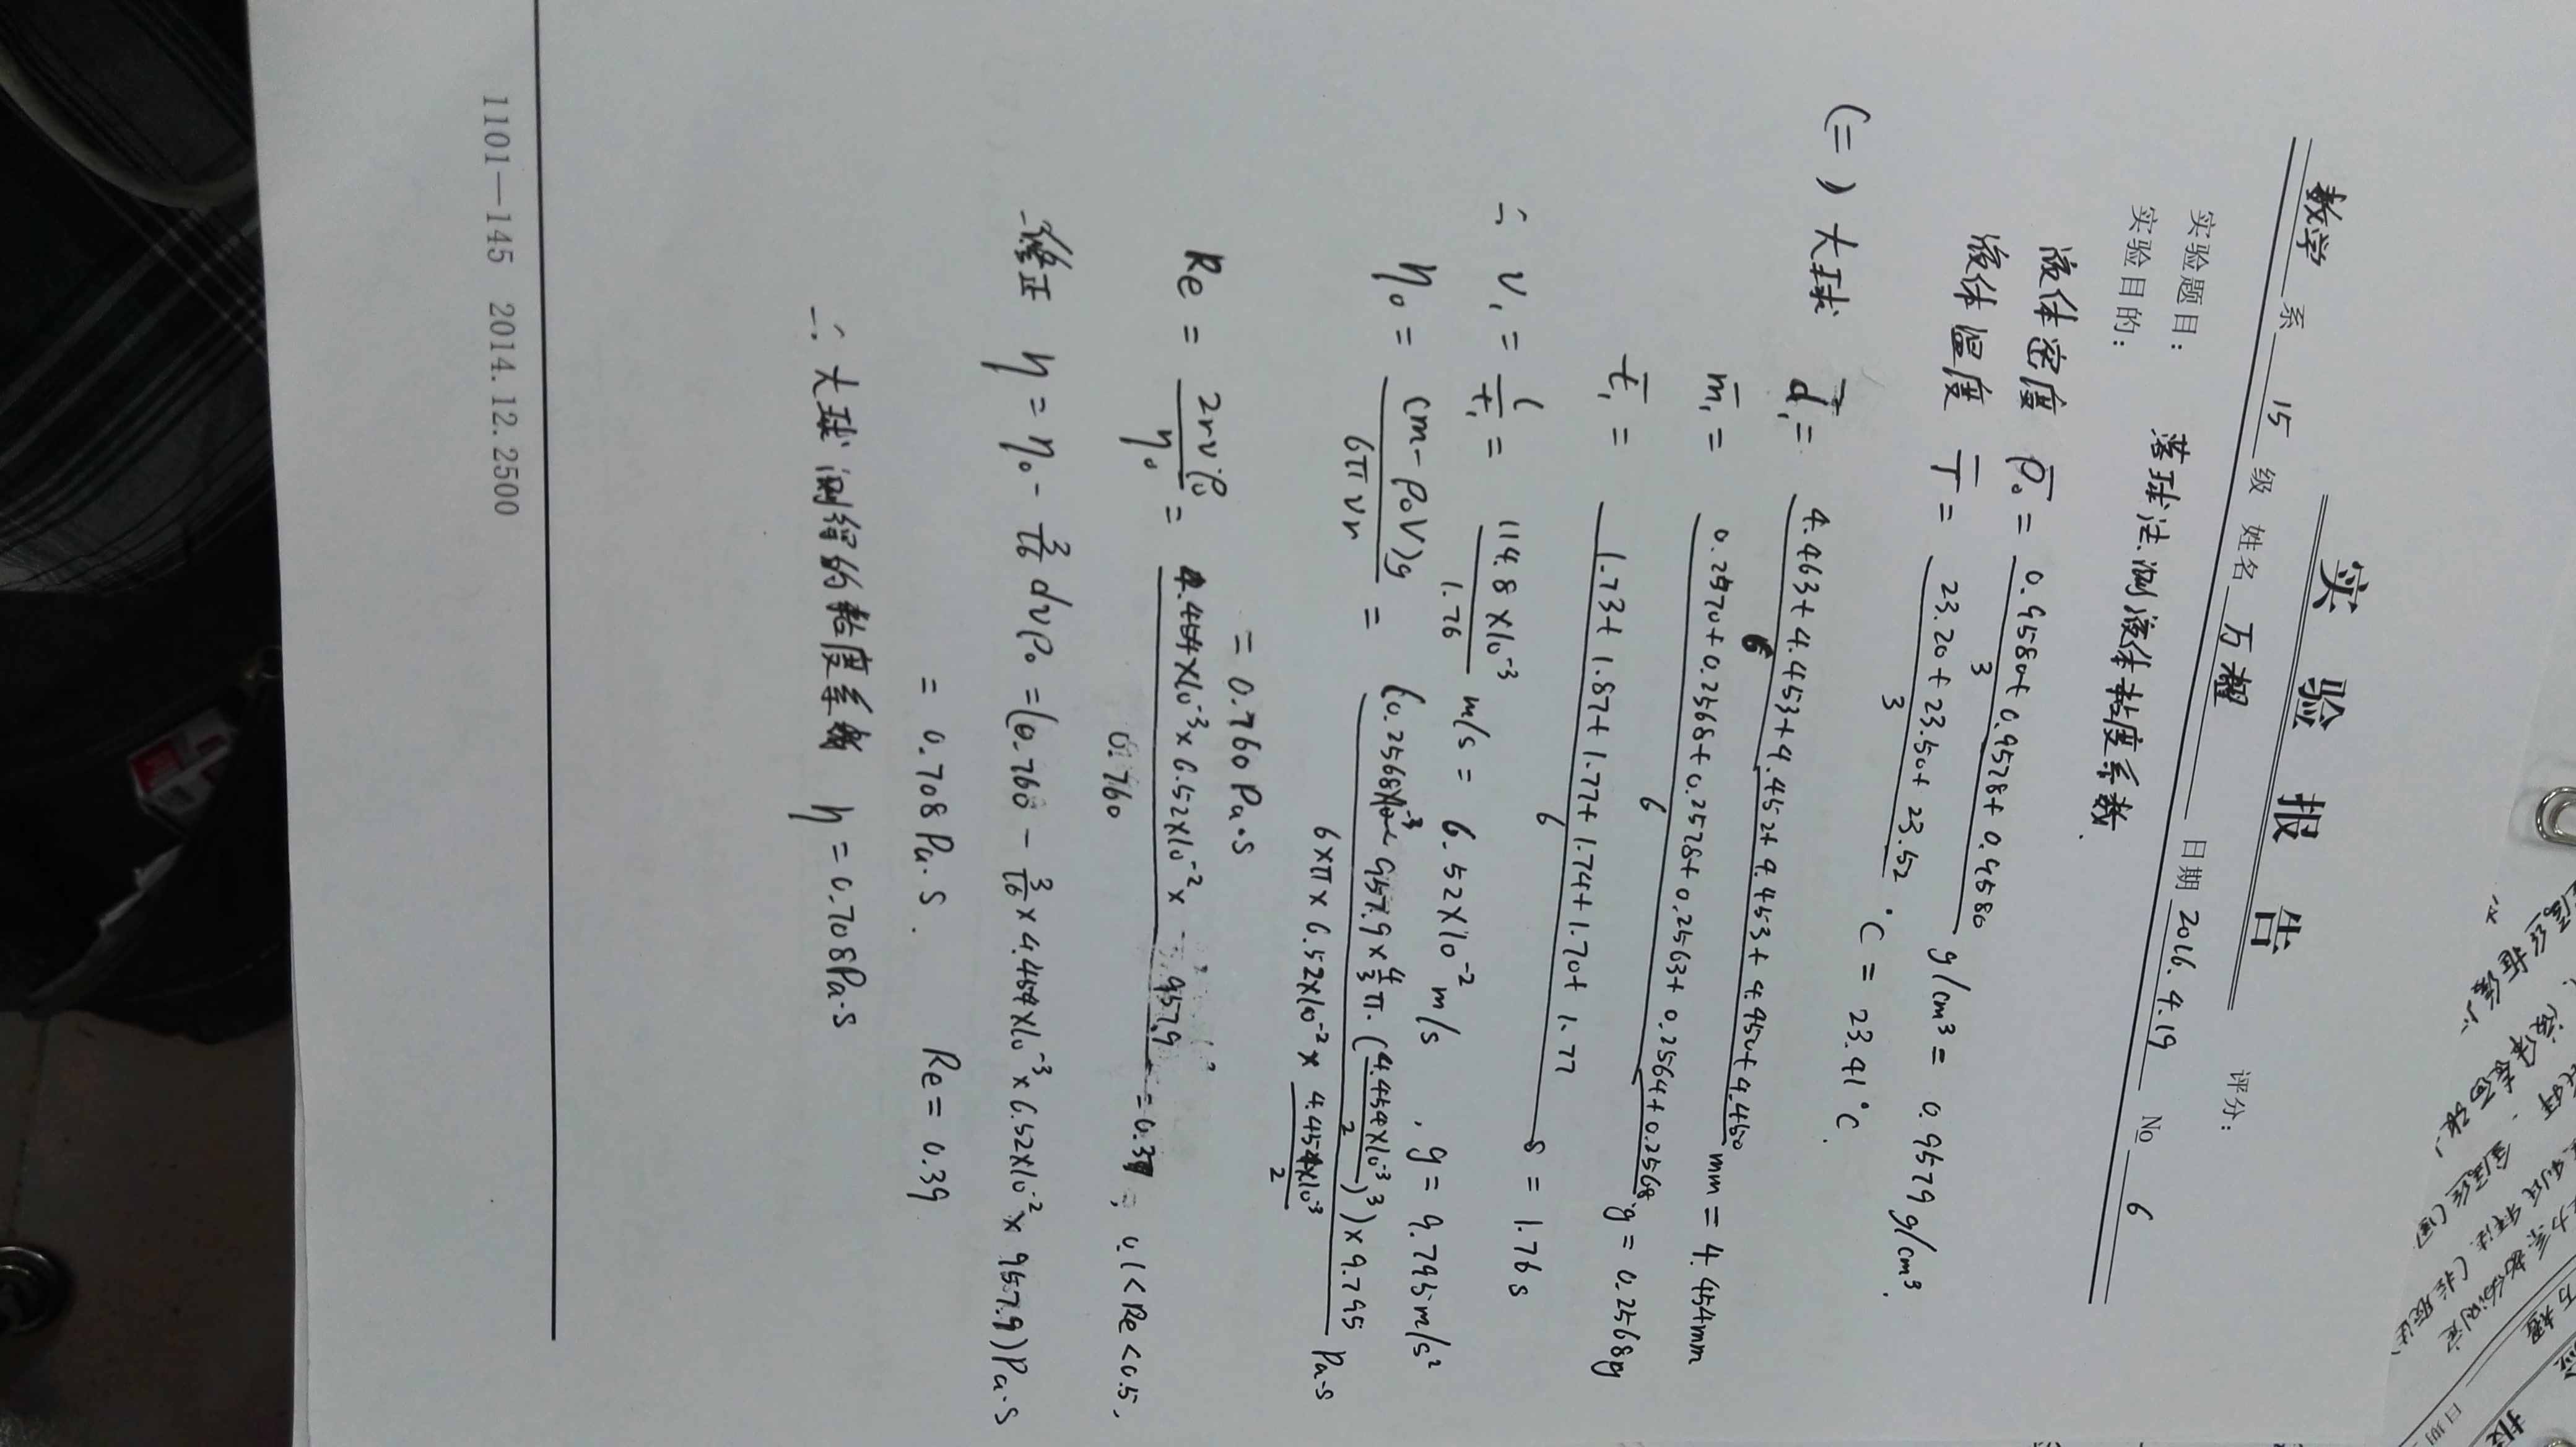 实 验 报 告
评分：
数学 系 15 级 姓名 万耀 日期 2016.4.19 No 6
实验题目： 落球法测液体粘度系数.
实验目的：
液体密度 ρ̄₀ = (0.9580+0.9578+0.9580)/3 g/cm³ = 0.9579 g/cm³.
液体温度 T̄ = (23.20+23.50+23.52)/3 °C = 23.41°C.
(二) 大球 d̄₁ = (4.463+4.4453+4.452+4.453+4.450+4.450)/6 mm = 4.454mm
m̄₁ = (0.2570+0.2568+0.2578+0.2563+0.2564+0.2568)/6 g = 0.2568g
t̄₁ = (1.73+1.87+1.77+1.74+1.70+1.77)/6 s = 1.76s
∴ v₁ = l/t₁ = 114.8×10⁻³/1.76 m/s = 6.52×10⁻² m/s , g = 9.795m/s²
η₀ = (m-ρ₀V)g/6πvr = (0.2568×10⁻³-957.9×4/3π·(4.454×10⁻³/2)³)×9.795/(6×π×6.52×10⁻²×4.454×10⁻³/2) Pa·s
= 0.760Pa·s
Re = 2rvρ₀/η₀ = 4.454×10⁻³×6.52×10⁻²×957.9/0.760 = 0.37, 0.1<Re<0.5,
∴修正 η = η₀ - 3/16 dvρ₀ = (0.760 - 3/16×4.454×10⁻³×6.52×10⁻²×957.9)Pa·s
= 0.708Pa·s. Re = 0.39
∴ 大球测得的粘度系数 η = 0.708Pa·s
1101—145 2014.12.2500
万耀
日期